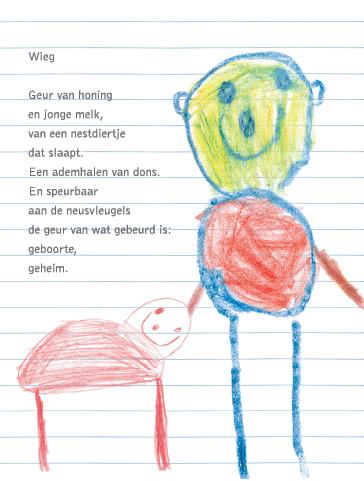 Wieg
Geur van honing
en jonge melk,
van een nestdiertje
dat slaapt.
Een ademhalen van dons.
En speurbaar
aan de neusvleugels
de geur van wat gebeurd is:
geboorte,
geheim.